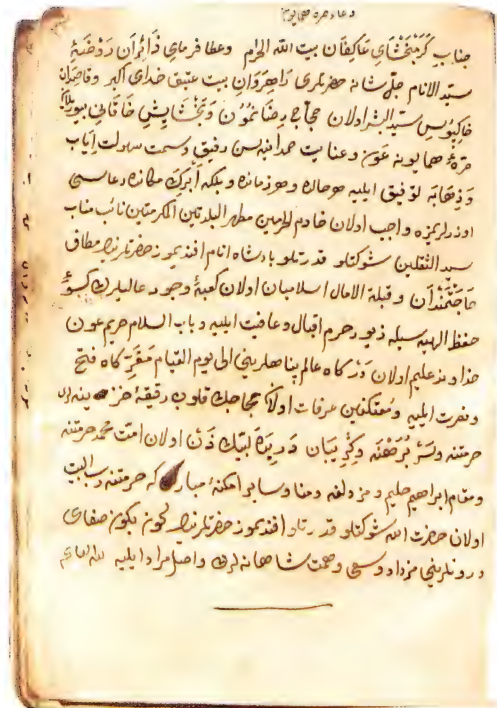 دعاء صره همايون
جناب كرمبخشاى عاكفان بيت الله الحرام وعطا فرماى زائران روضهٔ
سيد الانام جل شانه حضرتلرى راهروان بيت عتيق خداى اكبر وقاصدان
خاكبوس سيد البشر اولان حجاجى رضانمون وبخشايش خاقانى بيوريلان
صرهٔ همايونه عون وعنايت صمدانيه سن رفيق وسمت سهولت اياب
وذهابه توفيق ايليه هر حالده وهر زمانده وبلكه ابرك مكانده دعاسى
اوزرلريمزه واجب اولان خادم الحرمين مطهر البلدتين المكرمتين نائب مناب
سيد الثقلين شوكتلو قدرتلو پادشاه انام افنديمز حضرتلرينى مطاف
حاجتمندان وقبلة الامال اسلاميان اولان كعبهٔ وجود عاليلرن كسوهٔ
حفظ الهيه سيله زيور حرم اقبال وعافيت ايليه وباب السلام حريم عون
خداوند عليم اولان دركاه عالمپناهلرينى الى يوم القيام مقرّ كاه فتح
ونصرت ايليه ومعتكفين عرفات اولان حجاجك قلوب رقيقهٔ
حرمتنه وسر برهنه وكريبان دريده لبيك زن اولان امت محمد حرمتنه
ومقام ابراهيم حليم ومزدلفه ومنا وسائر امكنهٔ مباركه حرمتنه رب البيت
اولان حضرت الله شوكتلو قدرتلو افنديمز حضرتلرينك كون بكون صفاى
درونلرينى مزداد وسعى وهمت شاهانه لرن واصل مراد ايليه